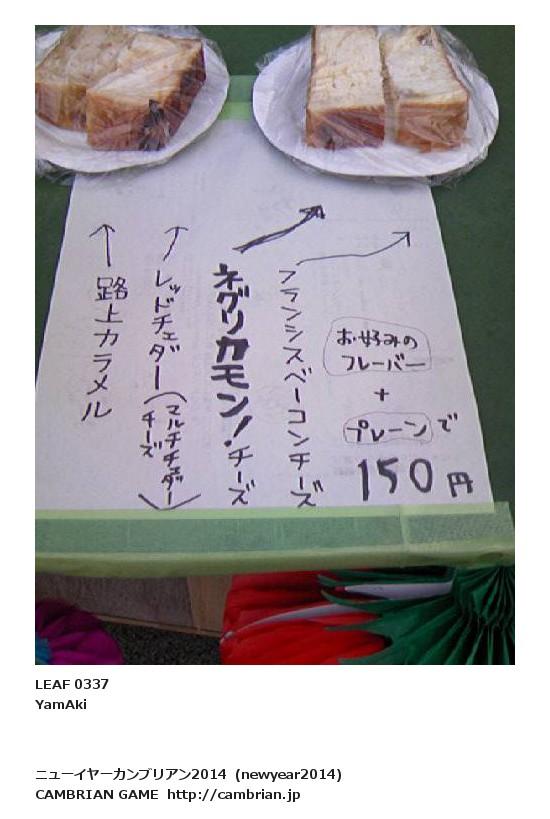 お好みの
フレーバー
+
プレーンで
150円
フランシスベーコンチーズ
ネグリカモン!チーズ
レッドチェダー(マルチチェダー
チーズ)
路上カラメル
LEAF 0337
YamAki
ニューイヤーカンブリアン2014 (newyear2014)
CAMBRIAN GAME http://cambrian.jp